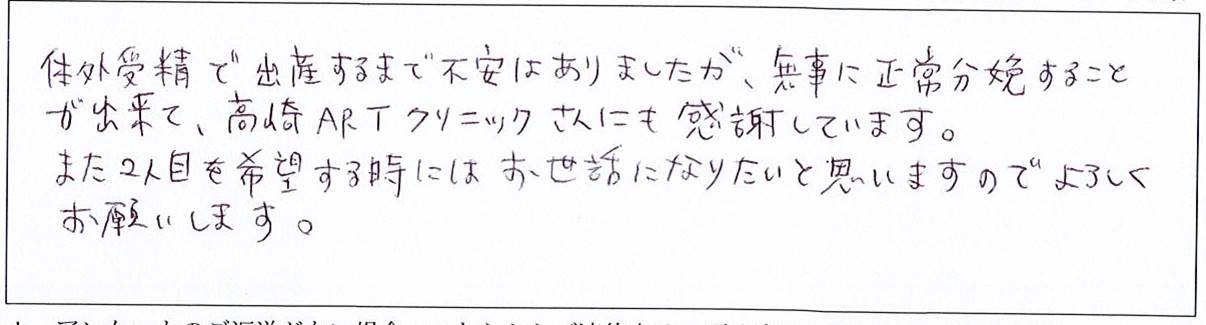 体外受精で出産するまで不安はありましたが、無事に正常分娩すること
が出来て、高崎ARTクリニックさんにも感謝しています。
また2人目を希望する時にはお世話になりたいと思いますのでよろしく
お願いします。